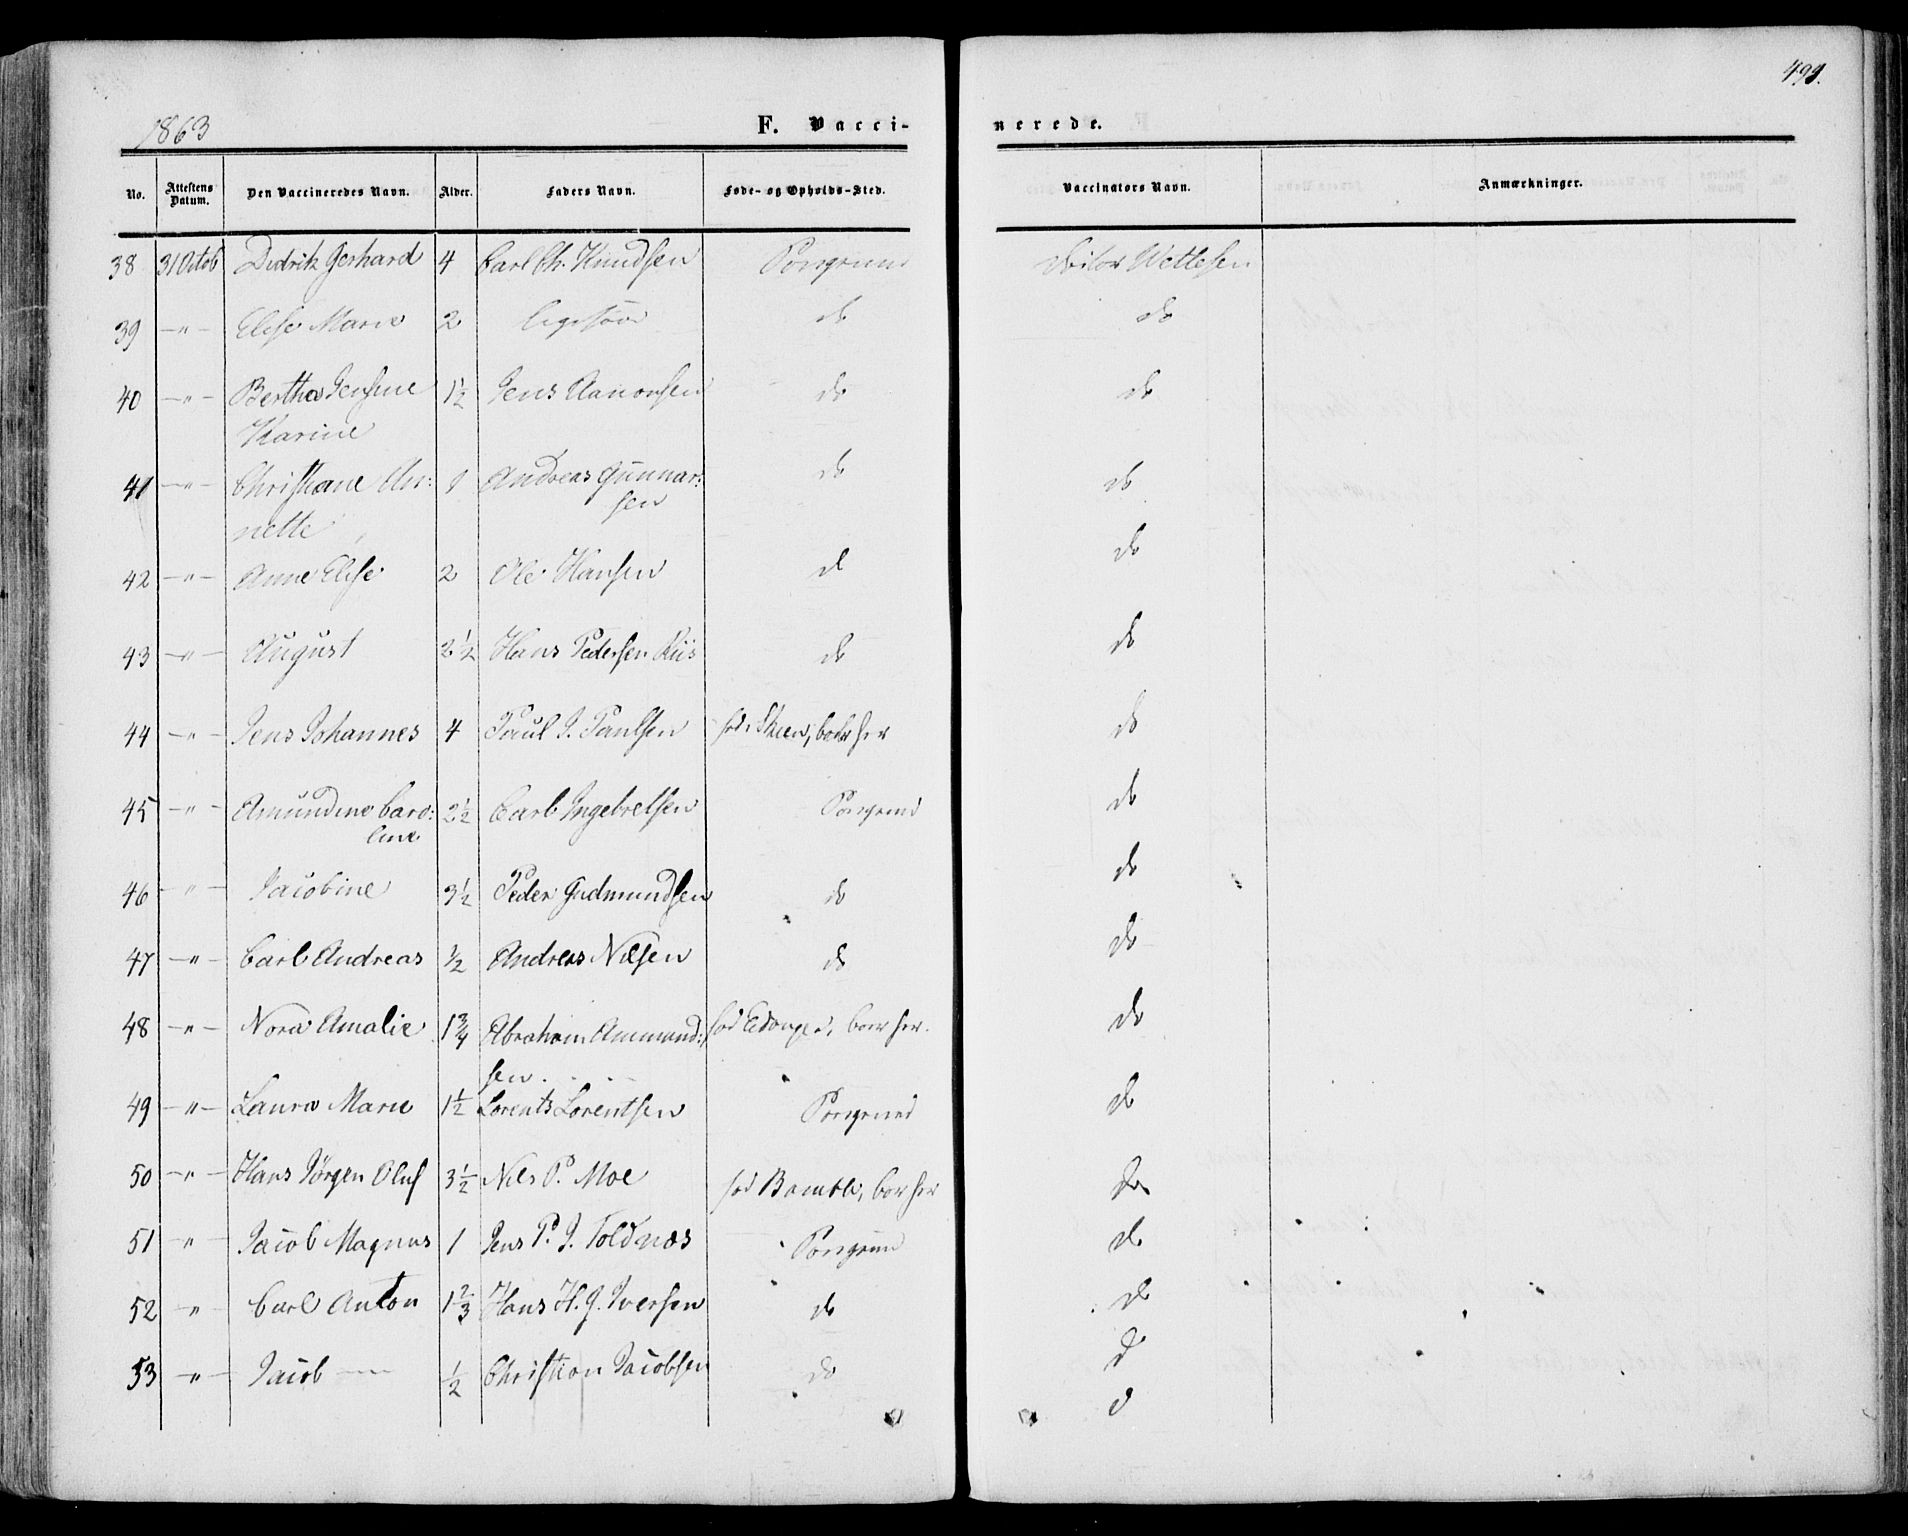 499.
1863 F. Vacci- nerede.
No. Attestens Datum. Den Vaccineredes Navn. Alder. Faders Navn. Føde- og Opholds-Sted. Vaccinators Navn. Anmærkninger.
38 31 Octob Didrik Gerhard 4 Carl Ch. Knudsen Porsgrund Wettesen
39 —"— Elise Marie 2 Ligesaa do do
40 —"— Bertha Jensine 1½ Jens Aanonsen do do
Karine
41 —"— Christiane An: 1 Andreas Gunnar: do do
nette sen
42 —"— Anne Elise 2 Ole Hansen do do
43 —"— August 2½ Hans Pedersen Riis do do
44 —"— Jens Johannes 4 Paul J. Paulsen fød i Skeen, boer her do
45 —"— Amundine Caro: 2½ Carl Ingebretsen Porsgrund do
line
46 —"— Jacobine 3½ Peder Gudmundsen do do
47 —"— Carl Andreas ½ Andreas Nilsen do do
48 —"— Nora Amalie 1¾ Abraham Ammund: fød Eidanger, boer her. do
sen.
49 —"— Laura Marie 1½ Lorents Lorentsen Porsgrund do
50 —"— Hans Jørgen Oluf 3½ Nils P. Moe fød Bamble, boer her do
51 " Jacob Magnus 1 Jens P. J. Toldnæs Porsgrund do
52 —"— Carl Anton 1⅔ Hans H. G. Iversen do do
53 —"— Jacob — ½ Christian Jacobsen do d
d